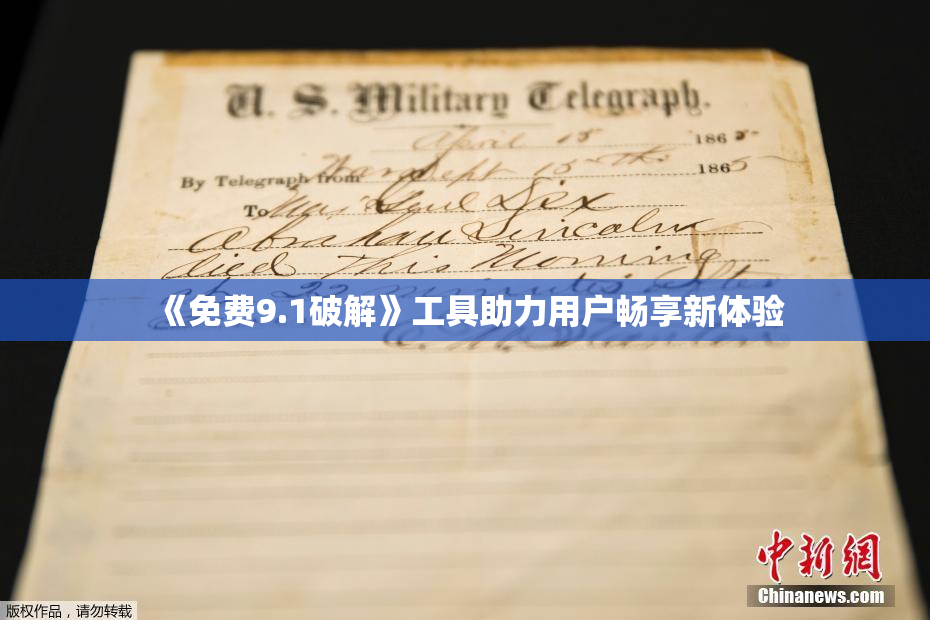 U. S. Military Telegraph.
April 15 1865
By Telegraph from War Dept 15th 1865
To Maj Genl Dix
Abraham Lincoln
died This Morning
at 22 minutes after
《免费9.1破解》工具助力用户畅享新体验
E. M. Stanton
中新网
Chinanews.com
版权作品，请勿转载